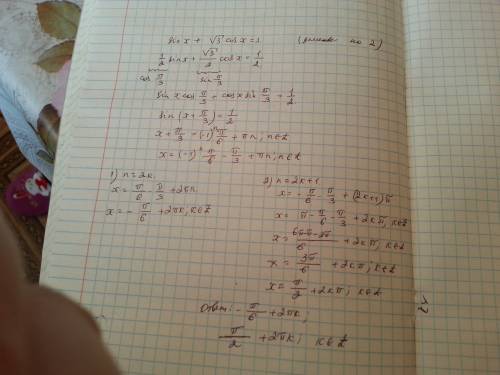 sin x + √3 cos x = 1 (делим на 2)
1/2 sin x + √3/2 cos x = 1/2
cos π/3 sin π/3
sin x cos π/3 + cos x sin π/3 = 1/2
sin (x + π/3) = 1/2
x + π/3 = (-1)ⁿ π/6 + πn, n∈Z
x = (-1)ⁿ π/6 - π/3 + πn, n∈Z
1) n=2k
x = π/6 - π/3 + 2πk
x = - π/6 + 2πk, k∈Z
2) n=2k+1
x = - π/6 - π/3 + (2k+1)π
x = π - π/6 - π/3 + 2kπ, k∈Z
x = 6π-π-2π/6 + 2kπ, k∈Z
x = 3π/6 + 2kπ, k∈Z
x = π/2 + 2kπ, k∈Z
Ответ: - π/6 + 2πk;
π/2 + 2πk, k∈Z